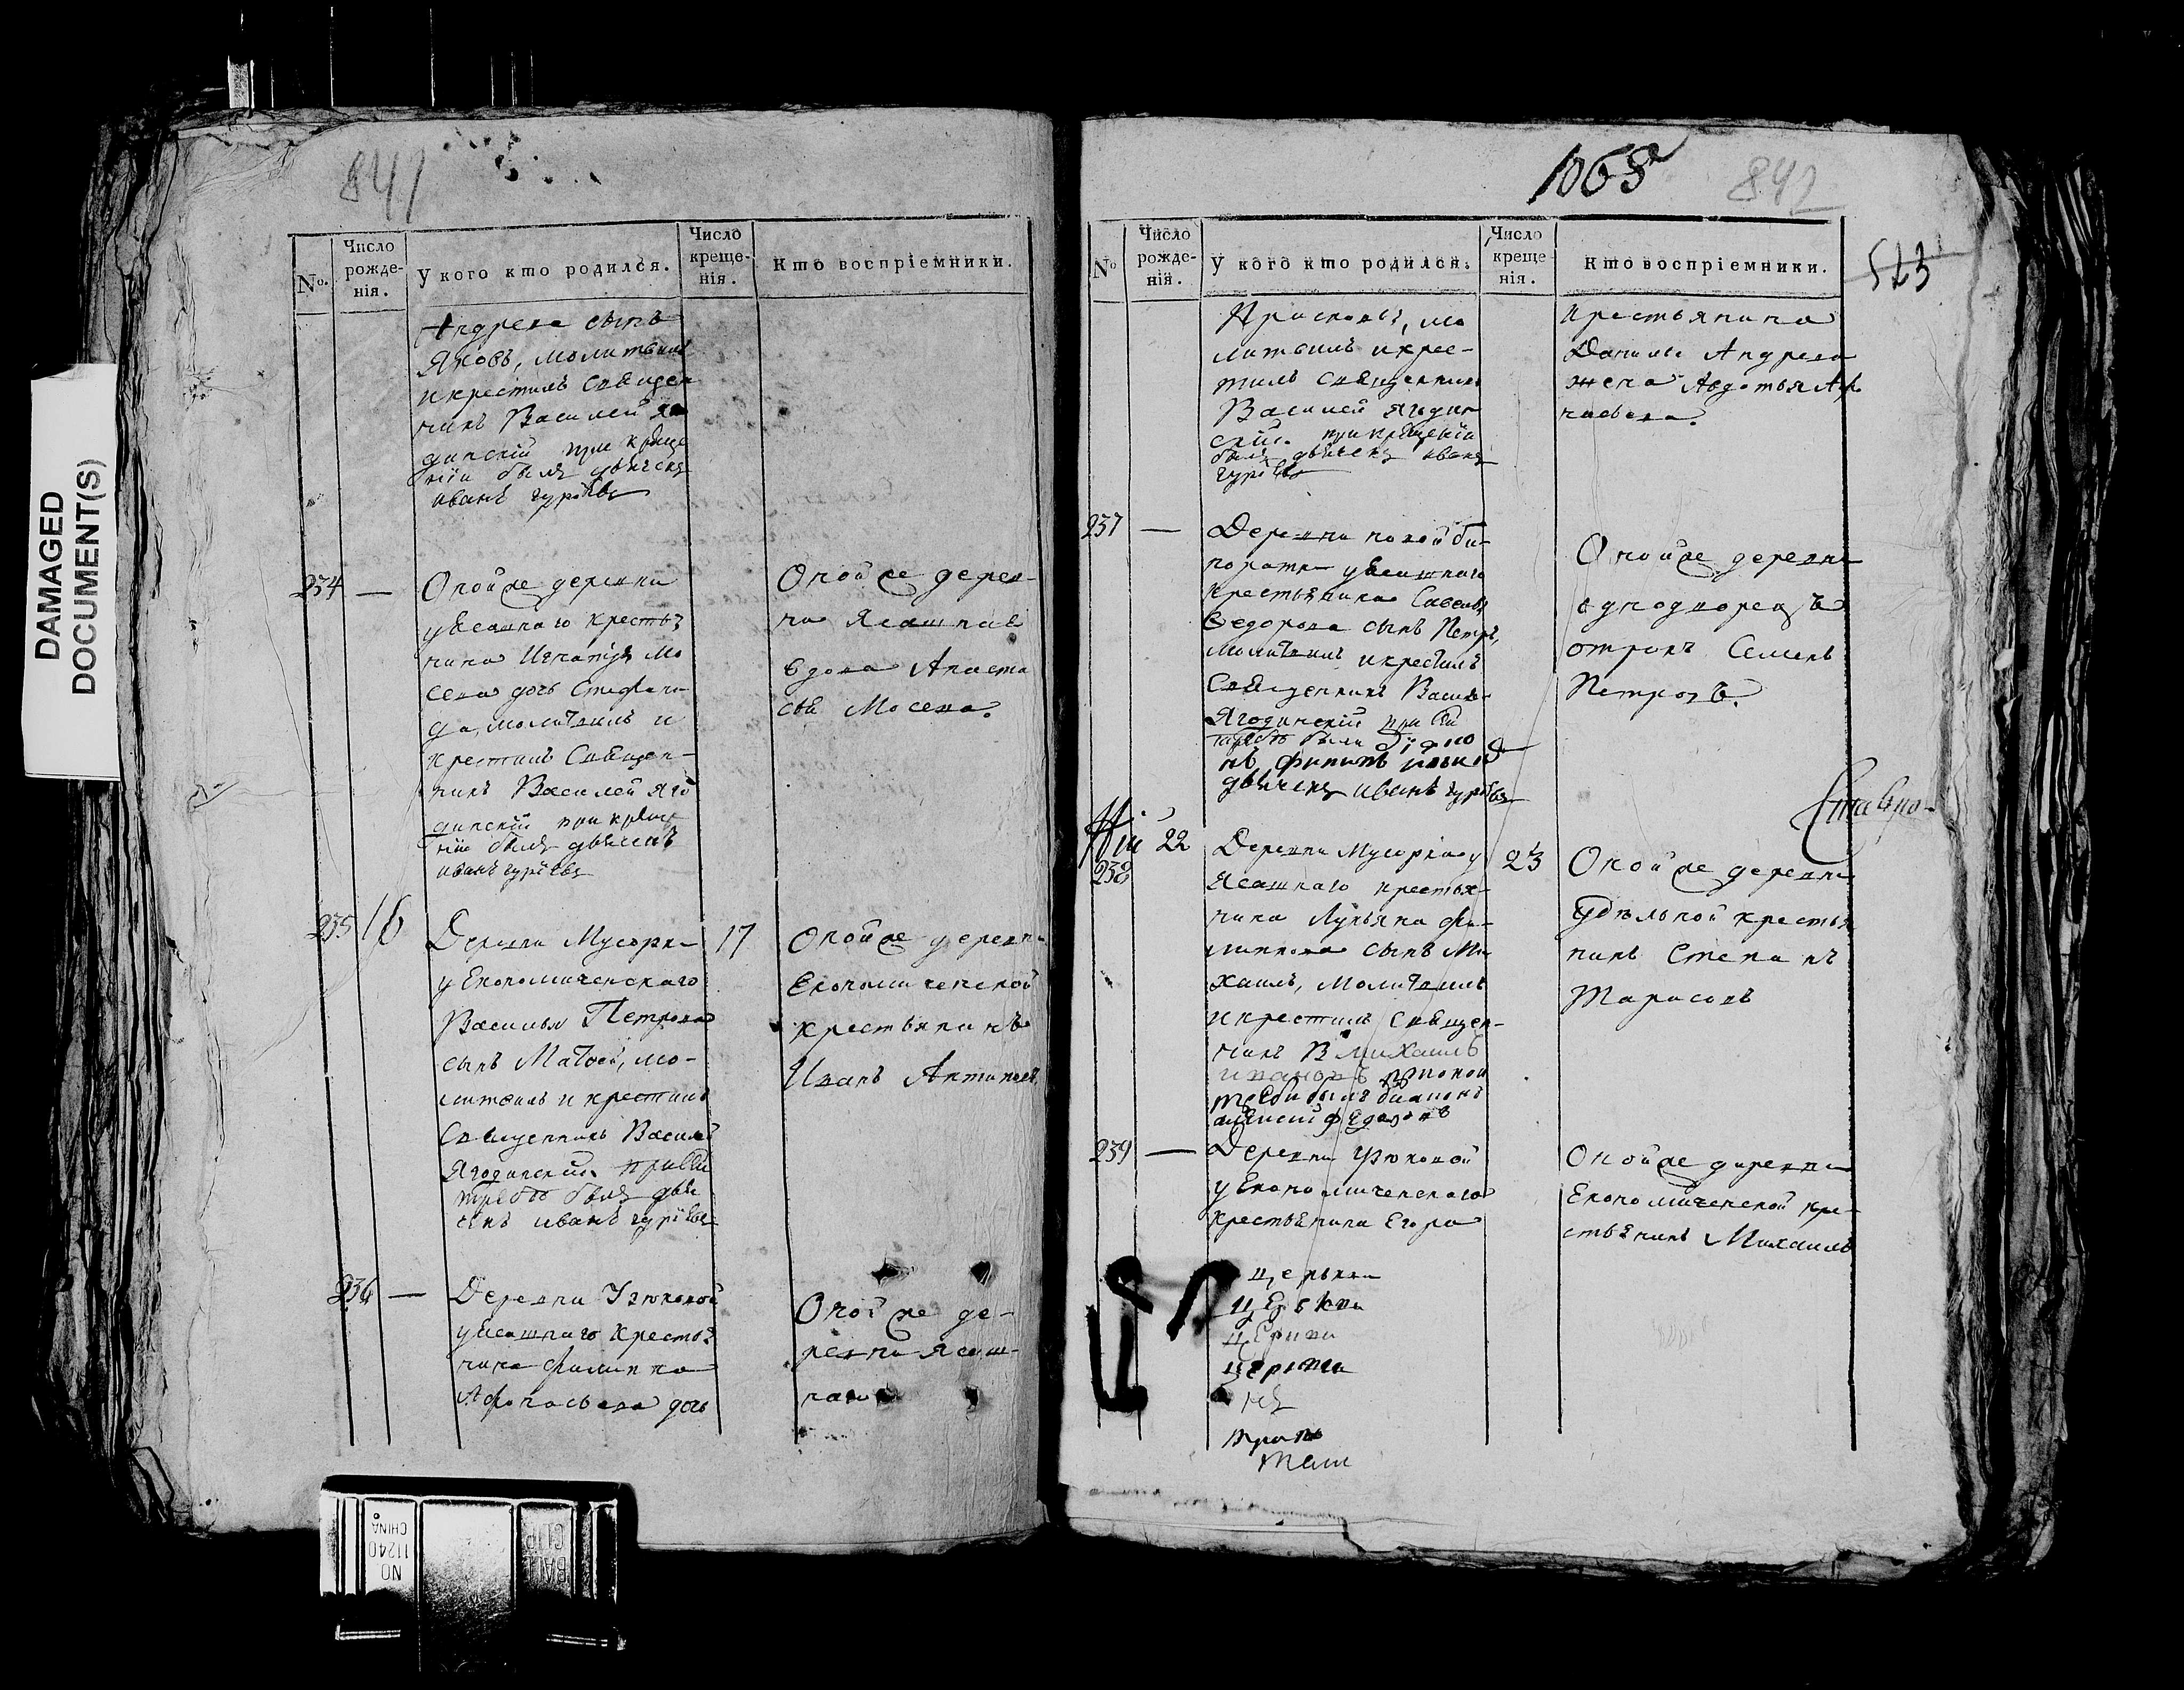 841
№.
Число рожденія.
У кого кто родился.
Число крещенія.
Кто воспріемники.
Андреева сынъ
Яковъ, молитвилъ
и крестилъ Священ
никъ Василей Яго
динскій при креще
ніи былъ дьячекъ
иванъ гурьевъ
234 —
Оной же деревни
у Ясашнаго крестья
нина Игнатья Мо
сева дочь Стефани
да, молитвилъ и
крестилъ Священ-
никъ Василей Яго
динскій при креще
ніи былъ дьячекъ
иванъ гурьевъ
Оной же дерев-
ни Ясашная
вдова Анаста
сья Мосева.
235 16
Деревни Мусорки
у Економическаго
Василья Петрова
сынъ Матвей, мо-
литвилъ и крестилъ
Священникъ Василей
Ягодинскій при сей
требѣ былъ дья
чекъ иванъ гурьевъ
17
Оной же деревни
Економической
крестьянинъ
Иванъ Антипов
236 —
Деревни Узюковой
у Ясашнаго крестья
нина Филиппа
Афонасьева дочь
Оной же де-
ревни Ясаш-
наго
1068
842
523
№
Число рожденія.
У кого кто родился.
Число крещенія.
Кто воспріемники.
Прасковья, мо
литвилъ и крес-
тилъ Священникъ
Василей Ягодин
скій. при крещеніи
былъ дьячекъ иванъ
гурьевъ
крестьянина
Данилы Андреева
жена Авдотья Аф
насьева.
237 —
Деревни новой би-
норатки у Ясашнаго
крестьянина Савелья
Федорова сынъ Петръ,
молитвилъ и крестилъ
Священникъ Василей
Ягодинскій при сей
требѣ были дьяко
нъ филипъ
дьячекъ иванъ гурьевъ
Оной же деревни
однодворецъ
отрокъ Семенъ
Петровъ.
Ставро-
22
238
Деревни Мусорки у
Ясашнаго крестья-
нина Лукьяна Фи-
липпова сынъ Ми
хаилъ, молитвилъ
и крестилъ Священ-
никъ В михаилъ
ивановъ при оной
требѣ былъ дьяконъ
алѣксѣй федоровъ
23
Оной же деревни
Удѣльной крестья
нинъ Степанъ
Тарасовъ
239 —
Деревни Узюковой
у Економическаго
крестьянина Егора
Оной же деревни
Економической кре-
стьянинъ Михаилъ
церкви
церкви
церкви
церкви
DAMAGED
DOCUMENT(S)
NO
11240
CHINA